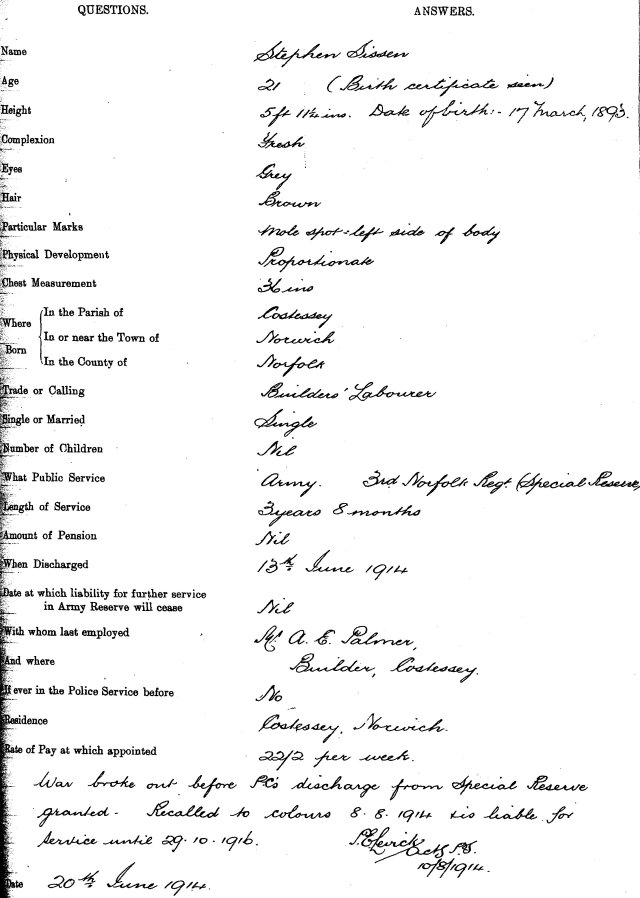 QUESTIONS. ANSWERS.
Name Stephen Sissen
Age 21 (Birth certificate seen)
Height 5ft 11¼ins. Date of birth:- 17 March, 1893.
Complexion Fresh
Eyes Grey
Hair Brown
Particular Marks Mole spot: left side of body
Physical Development Proportionate
Chest Measurement 36 ins
Where Born In the Parish of Costessey
In or near the Town of Norwich
In the County of Norfolk
Trade or Calling Builders' Labourer
Single or Married Single
Number of Children Nil
What Public Service Army. 3rd Norfolk Regt (Special Reserve)
Length of Service 3 years 8 months
Amount of Pension Nil
When Discharged 13th June 1914
Date at which liability for further service
in Army Reserve will cease Nil
With whom last employed Mr A. E. Palmer,
And where Builder, Costessey.
If ever in the Police Service before No
Residence Costessey, Norwich.
Rate of Pay at which appointed 22/2 per week.
War broke out before PC's discharge from Special Reserve
granted. Recalled to colours 8.8.1914 & is liable for
service until 29.10.1916.
10/8/1914.
Date 20th June 1914.